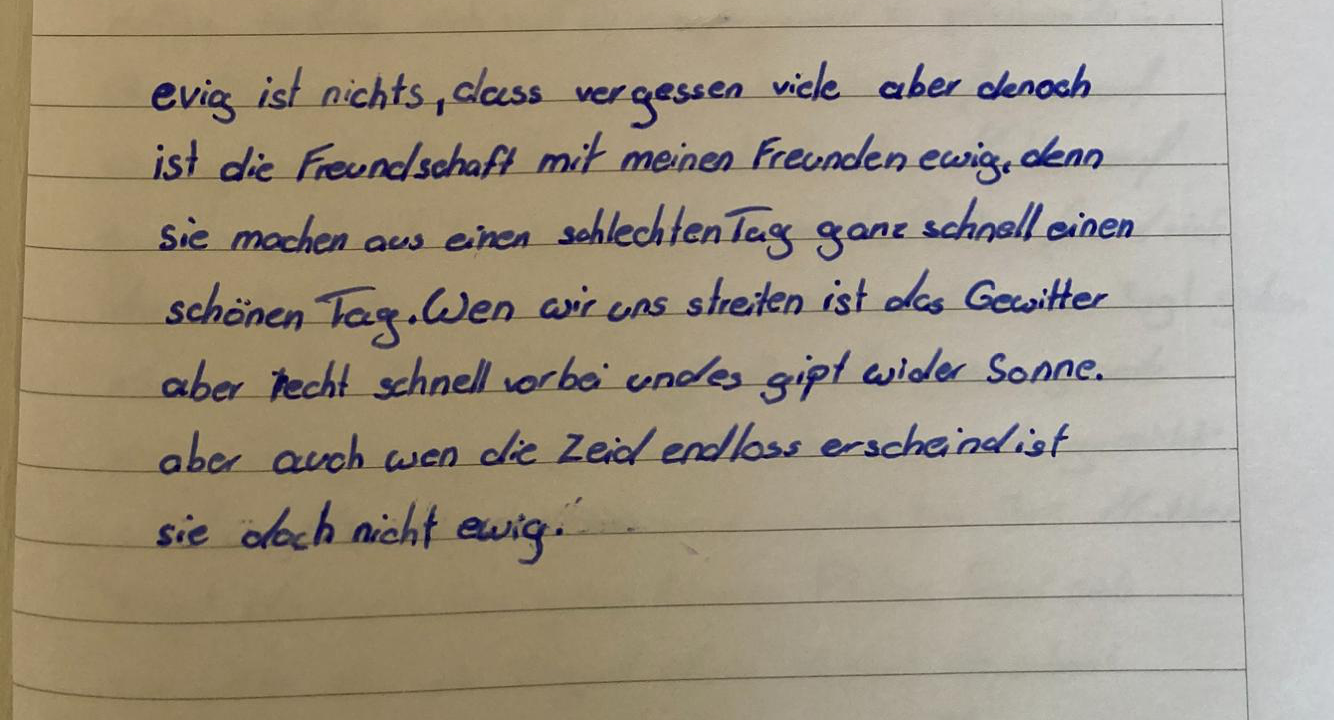 evig ist nichts, dass vergessen viele aber denoch
ist die Freundschaft mit meinen Freunden ewig, denn
sie machen aus einen schlechten Tag ganz schnell einen
schönen Tag. Wen wir uns streiten ist das Gewitter
aber recht schnell vorbei und es gipt wider Sonne.
aber auch wen die Zeid endloss erscheind ist
sie doch nicht ewig.